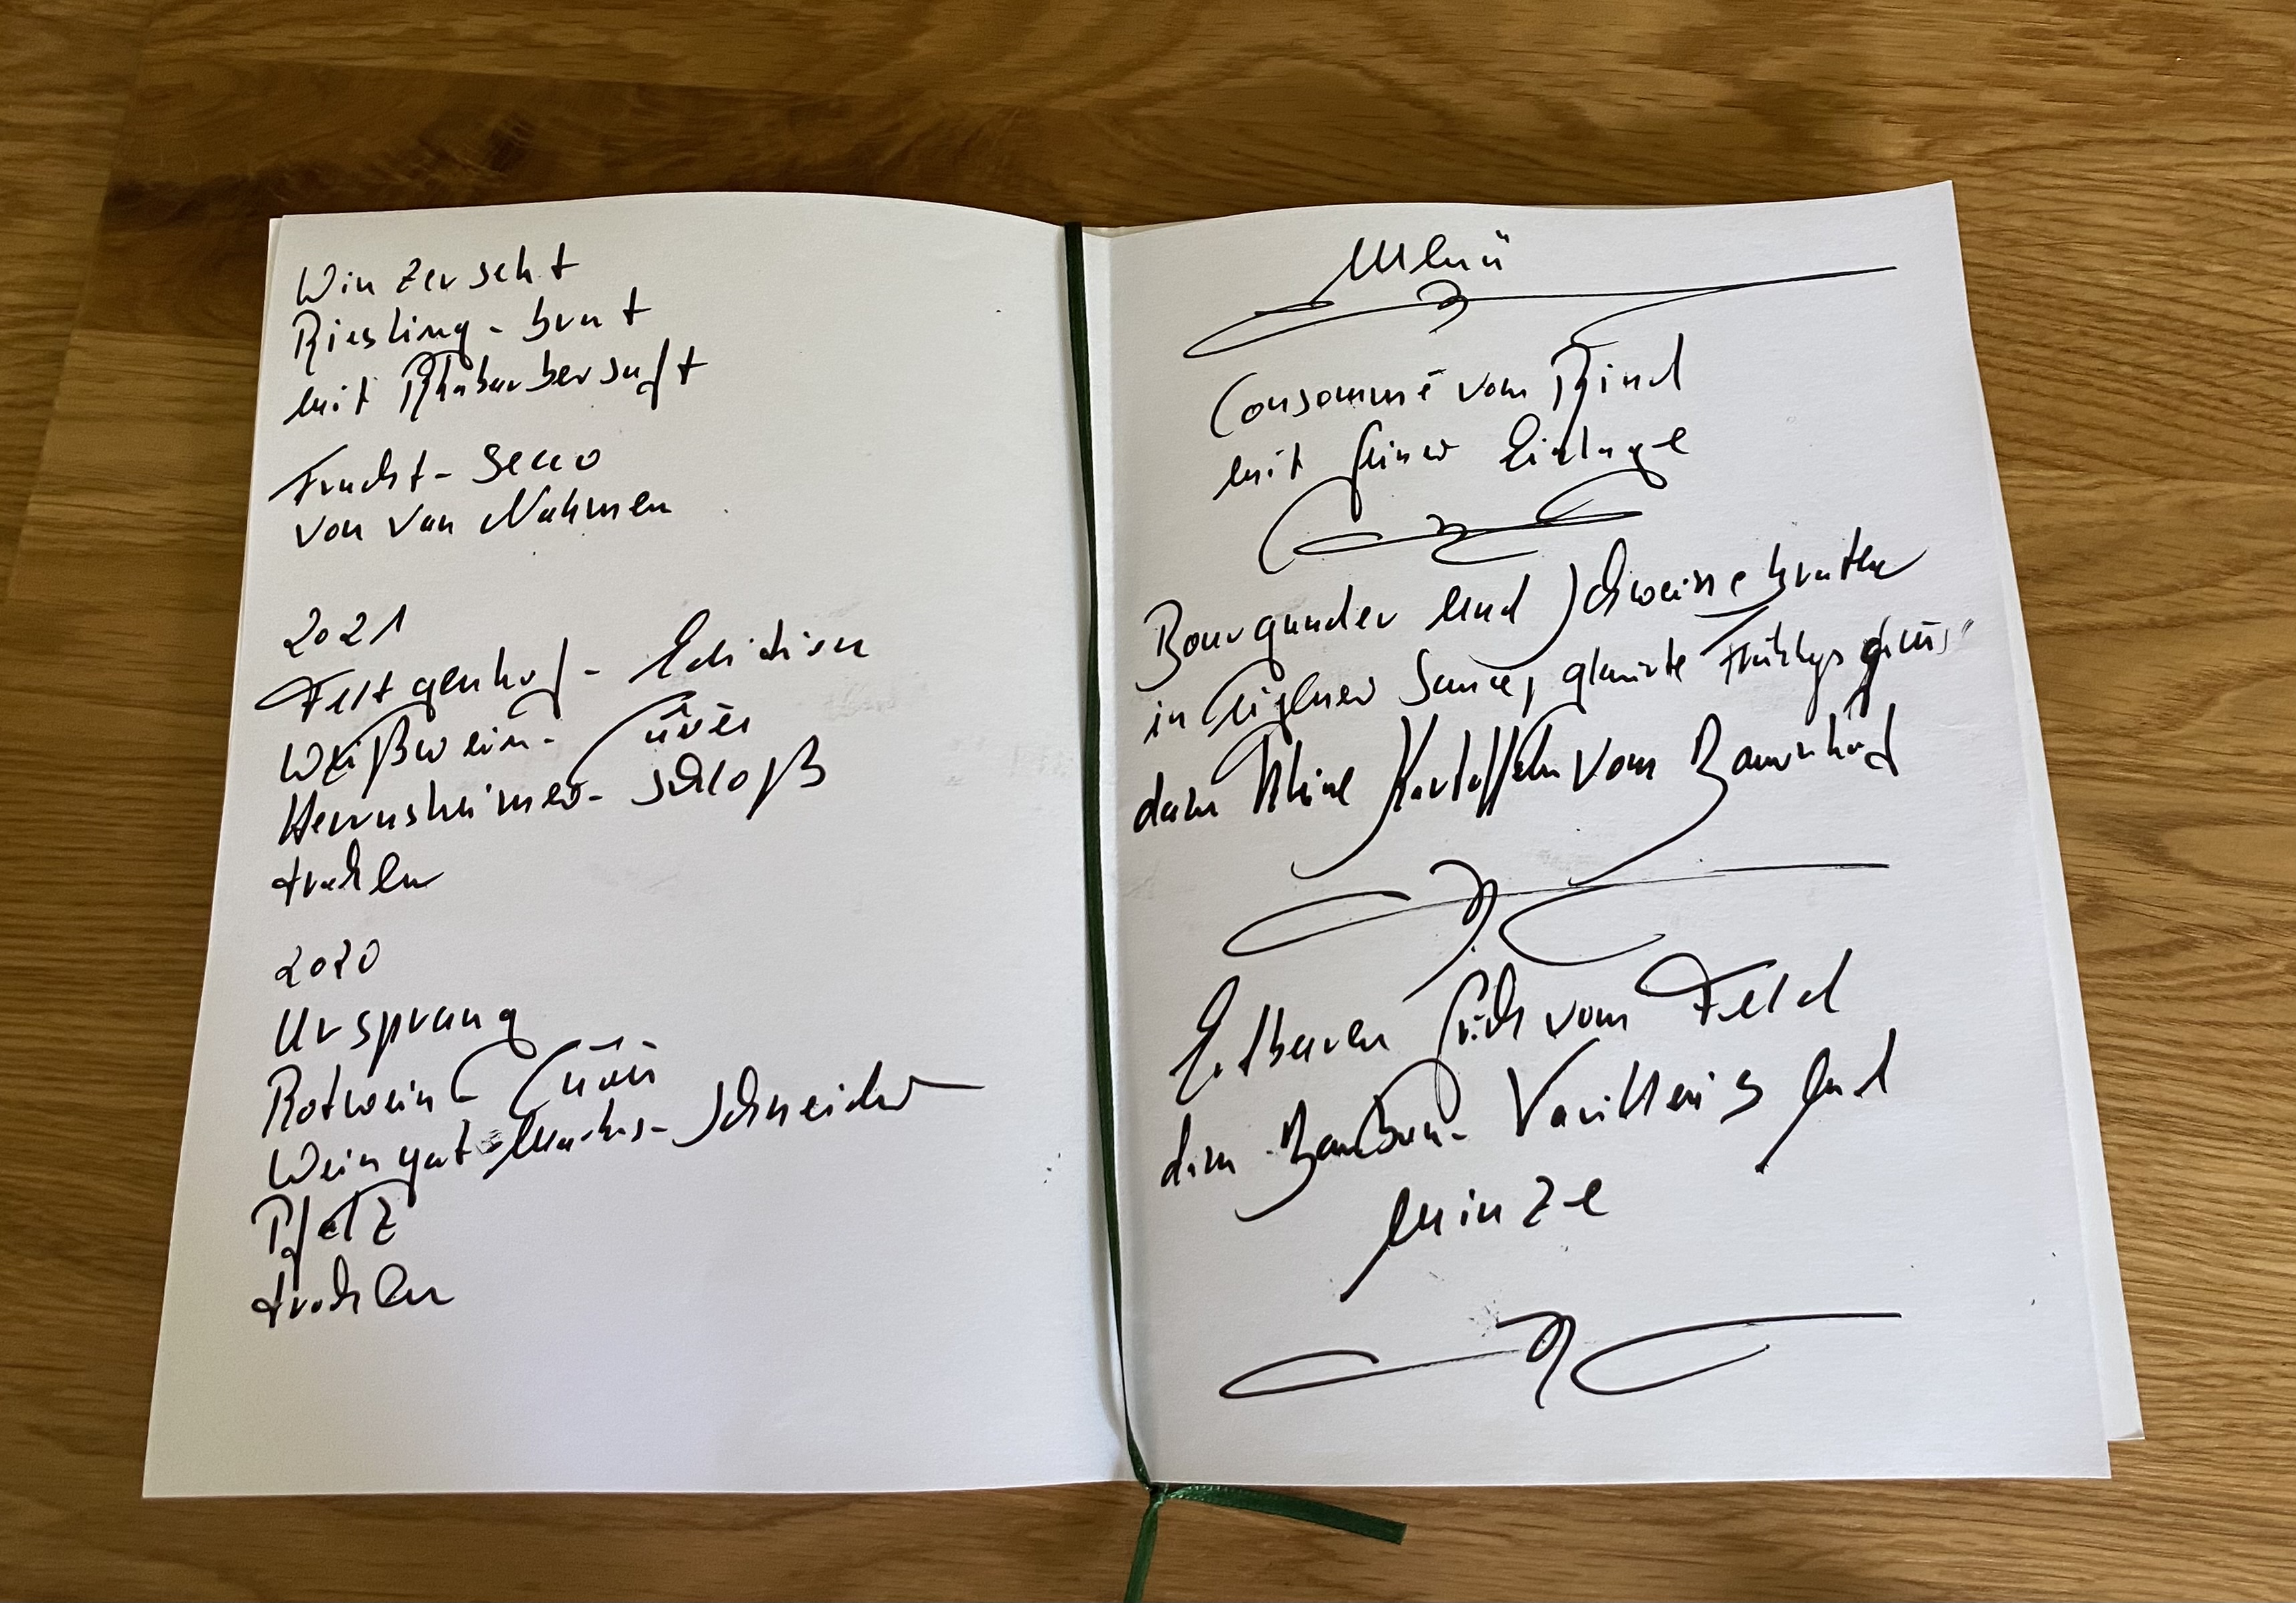 Winzersekt
Riesling-brut
mit Rhabarbersaft
Frucht-Secco
von van Nahmen
2021
Festgenhof-Edition
Weißwein-Cüvée
Herrnsheimer-Schloß
trocken
2020
Ursprung
Rotwein Cüvée
Weingut-Markus-Schneider
Pfalz
trocken
Menü
Consommé vom Rind
mit feiner Einlage
Bourgunder und Schweinebraten
in eigener Sauce, glasierte Frühlings
dazu kleine Kartoffeln vom Bauernhof
Erdbeeren frisch vom Feld
dazu Bourbon-Vanilleeis und
Minze